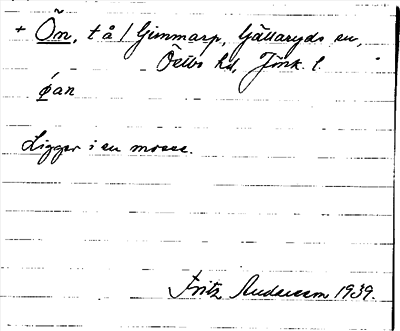 + Ön, t å / Gimmarp, Gällaryds sn,
Östbo hd, Jönk. l.
øan
Ligger i en mosse.
Fritz Andersson 1939.